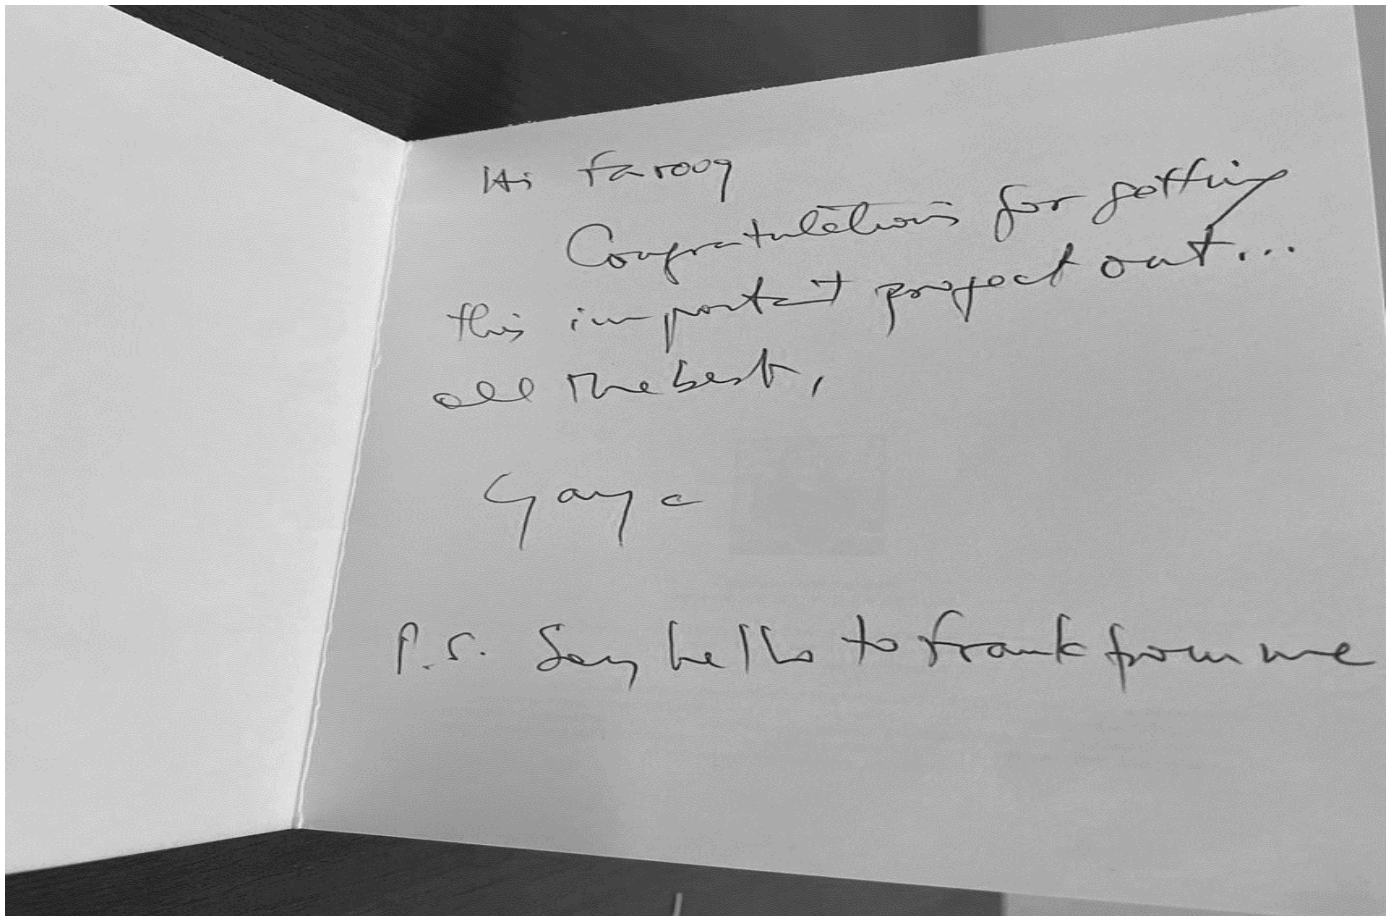 Hi Farooq
Congratulations for getting
this important project out...
all the best,
Gaya
P.S. Say hello to Frank from me